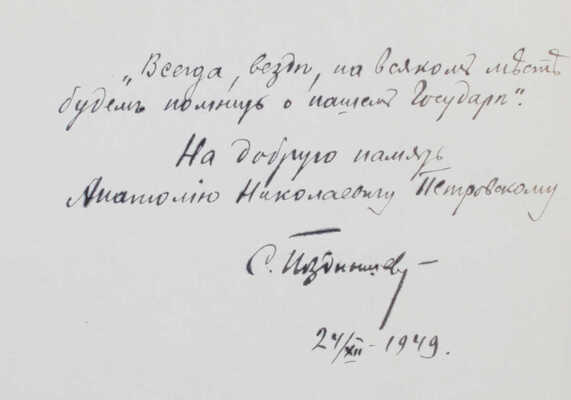 „Всегда, вездѣ, на всякомъ мѣстѣ
будемъ помнить о нашемъ Государѣ“.
На добрую память
Анатолію Николаевичу Петровскому
С. Позднышев
24/XII-1949.